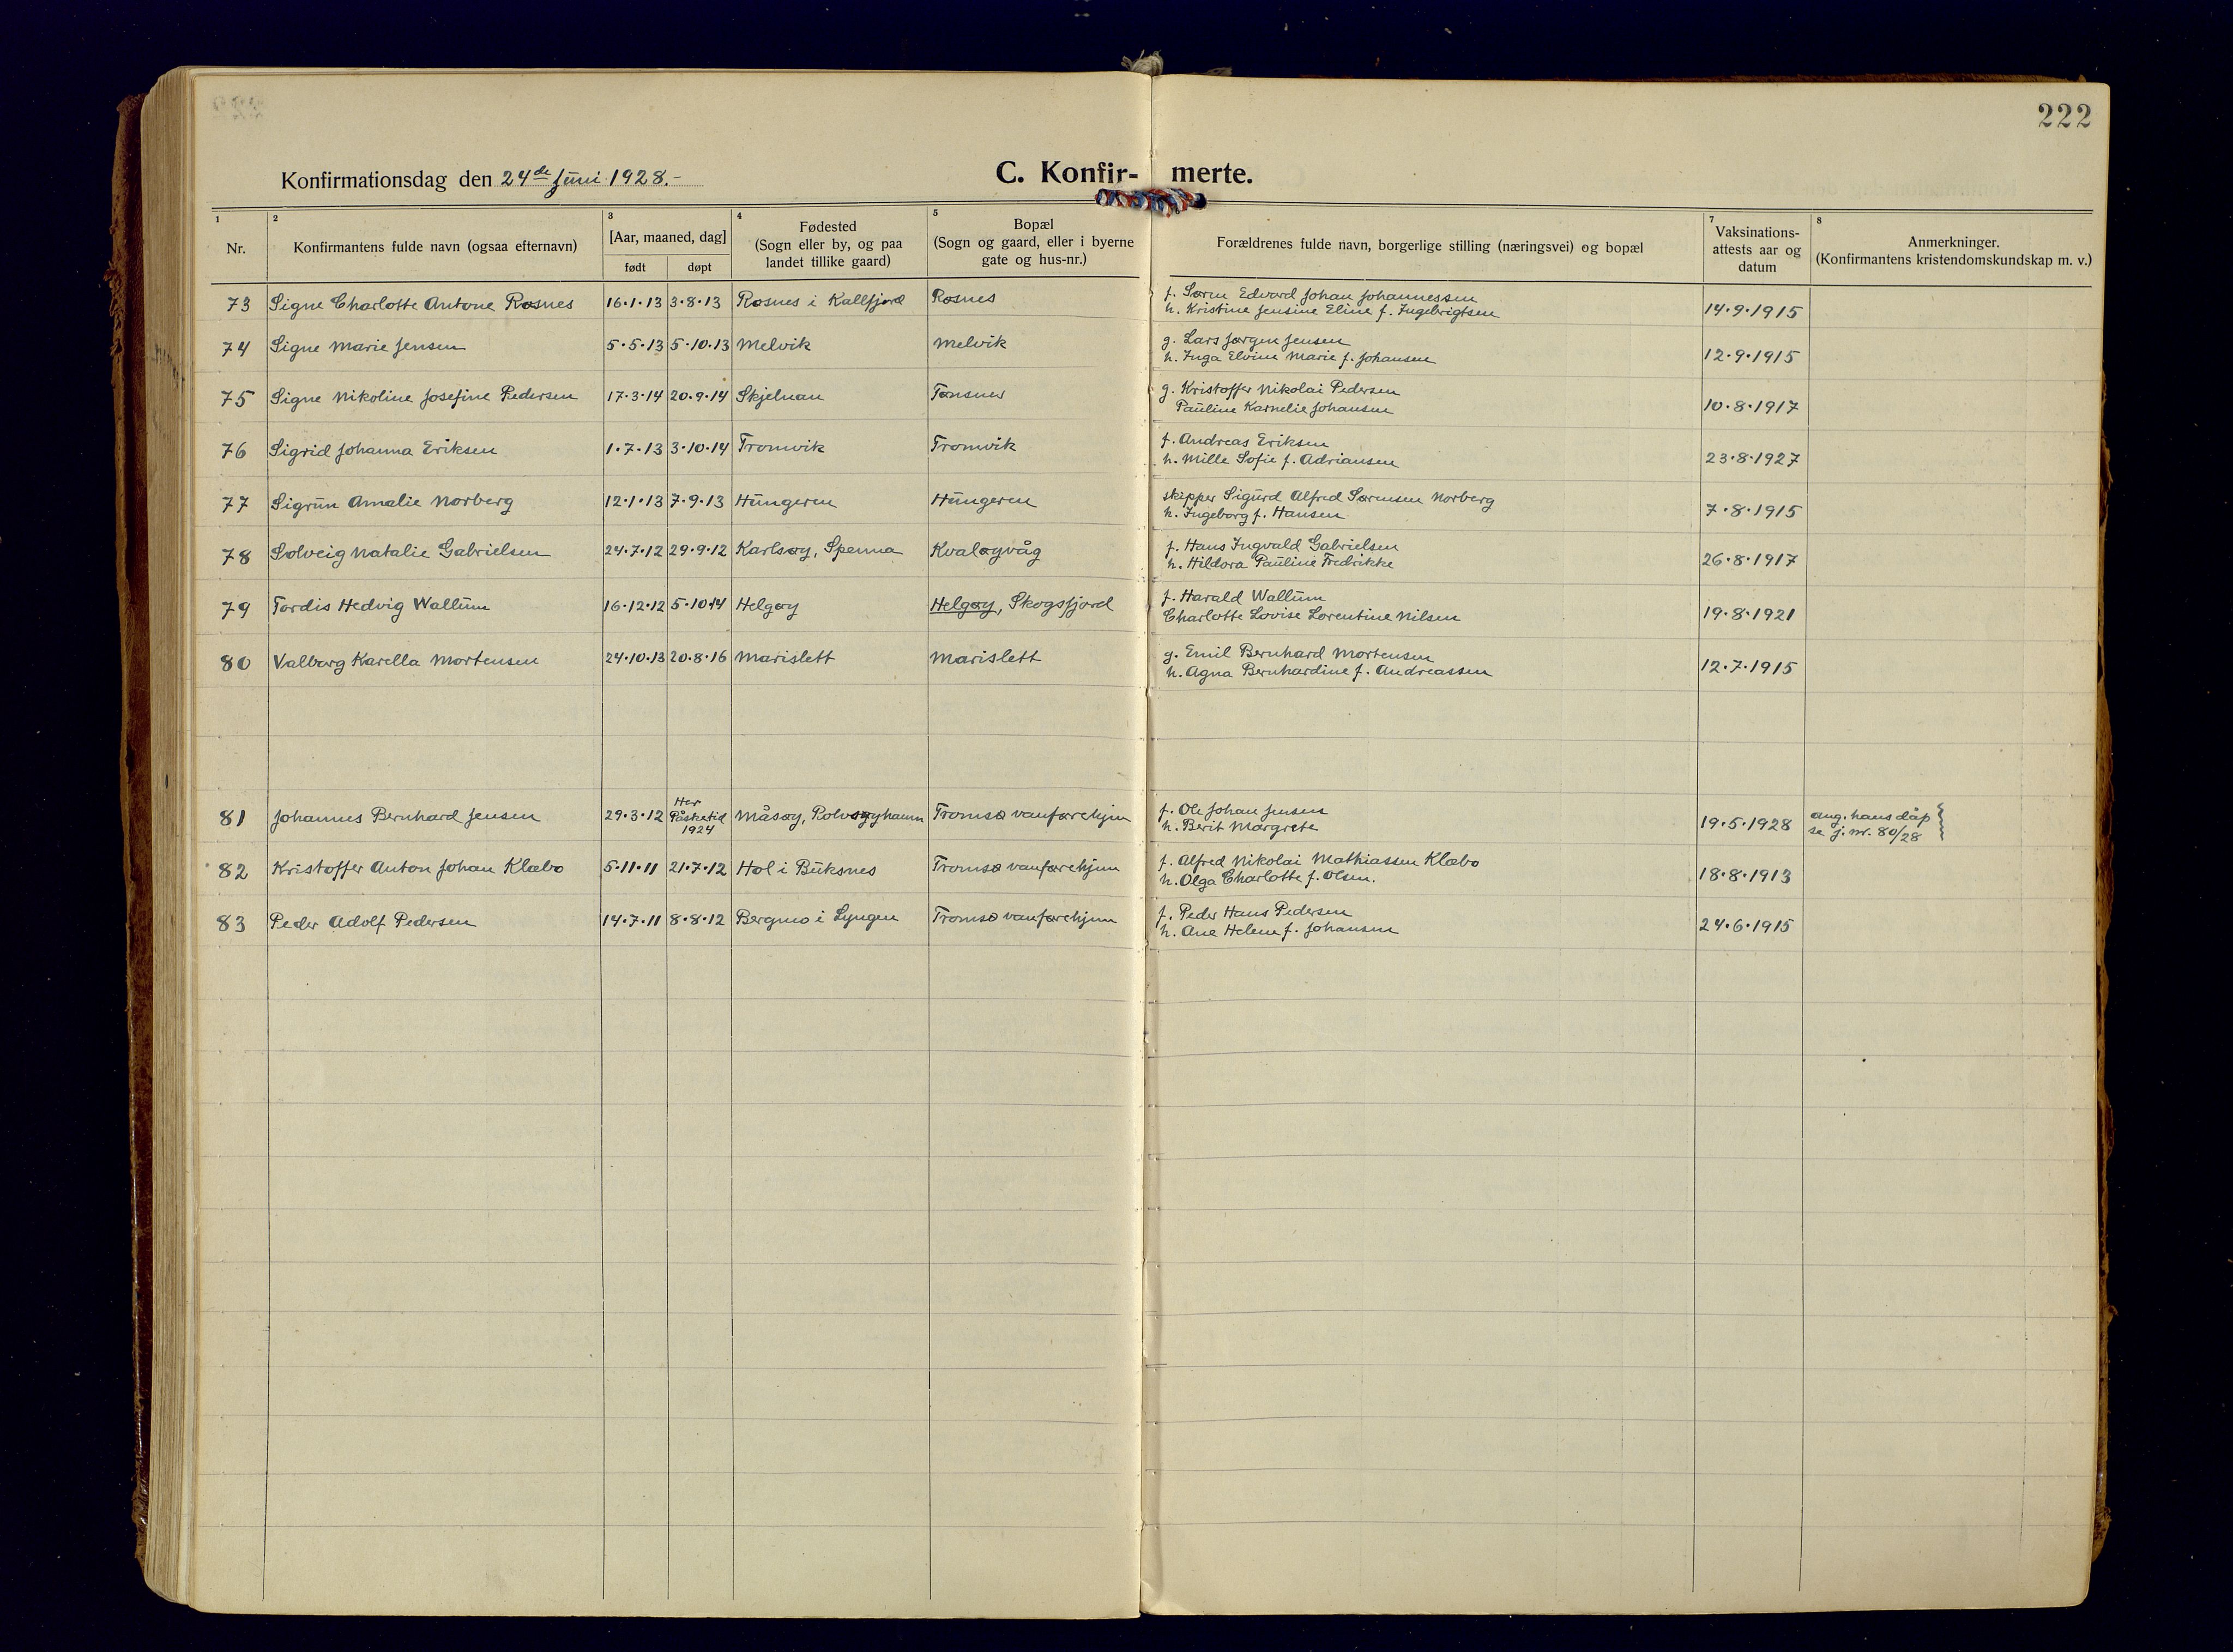 222
Konfirmationsdag den 24de Juni 1928.-
C. Konfir- merte.
1 2 3 4 5 7 8
Nr.
Konfirmantens fulde navn (ogsaa efternavn)
[Aar, maaned, dag]
født døpt
Fødested
(Sogn eller by, og paa
landet tillike gaard)
Bopæl
(Sogn og gaard, eller i byerne
gate og hus-nr.)
Forældrenes fulde navn, borgerlige stilling (næringsvei) og bopæl
Vaksinations-
attests aar og
datum
Anmerkninger.
(Konfirmantens kristendomskundskap m. v.)
73 Signe Charlotte Antone Røsnes 16·1·13 3·8·13 Røsnes i Kallfjord Røsnes
f. Søren Edvard Johan Johannessen
h. Kristine Jensine Eline f. Ingebrigtsen 14·9·1915
74 Signe Marie Jensen 5·5·13 5·10·13 Melvik Melvik
g. Lars Jørgen Jensen
h. Inga Elvine Marie f. Johansen 12·9·1915
75 Signe Nikoline Josefine Pedersen 17·3·14 20·9·14 Skjelnan Tønsnes
g. Kristoffer Nikolai Pedersen
Pauline Karnelie Johansen 10·8·1917
76 Sigrid Johanna Eriksen 1·7·13 3·10·14 Tromvik Tromvik
f. Andreas Eriksen
h. Mille Sofie f. Adriansen 23·8·1927
77 Sigrun Amalie Norberg 12·1·13 7·9·13 Hungeren Hungeren
skipper Sigurd Alfred Sørensen Norberg
h. Ingeborg f. Hansen 7·8·1915
78 Solveig Natalie Gabrielsen 24·7·12 29·9·12 Karlsøy, Spenna Kvaløyvåg
f. Hans Ingvald Gabrielsen
h. Hildora Pauline Fredrikke 26·8·1917
79 Tordis Hedvig Wallum 16·12·12 5·10·14 Helgøy Helgøy, Skogsfjord
f. Harald Wallum
Charlotte Lovise Lorentine Nilsen 19·8·1921
80 Valborg Karella Mortensen 24·10·13 20·8·16 Marislett Marislett
g. Emil Bernhard Mortensen
h. Agna Bernhardine f. Andreassen 12·7·1915
81 Johannes Bernhard Jensen 29·3·12 Her
Påsketid
1924
Måsøy, Rolvsøyhamn Tromsø vanførehjem
f. Ole Johan Jensen
h. Berit Margrete 19·5·1928
ang. hans dåp
se j. nr. 80/28
82 Kristoffer Anton Johan Klæbo 5·11·11 21·7·12 Hol i Buksnes Tromsø vanførehjem
f. Alfred Nikolai Mathiassen Klæbo
h. Olga Charlotte f. Olsen. 18·8·1913
83 Peder Adolf Pedersen 14·7·11 8·8·12 Bergmo i Lyngen Tromsø vanførehjem
f. Peder Hans Pedersen
h. Ane Helene f. Johansen 24·6·1915